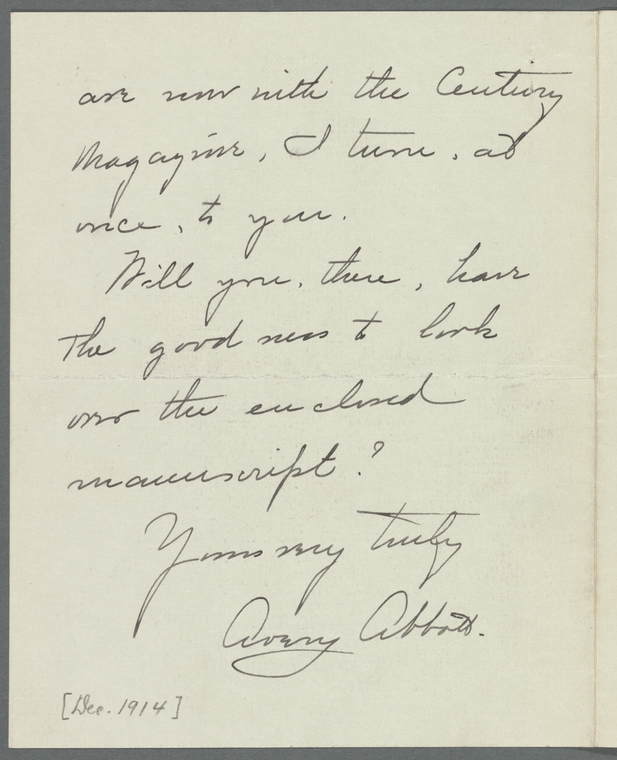 are now with the Century
Magazine, I turn, at
once, to you.
Will you, then, have
the goodness to look
over the enclosed
manuscript?
Yours very truly
Avery Abbott.
[Dec. 1914]